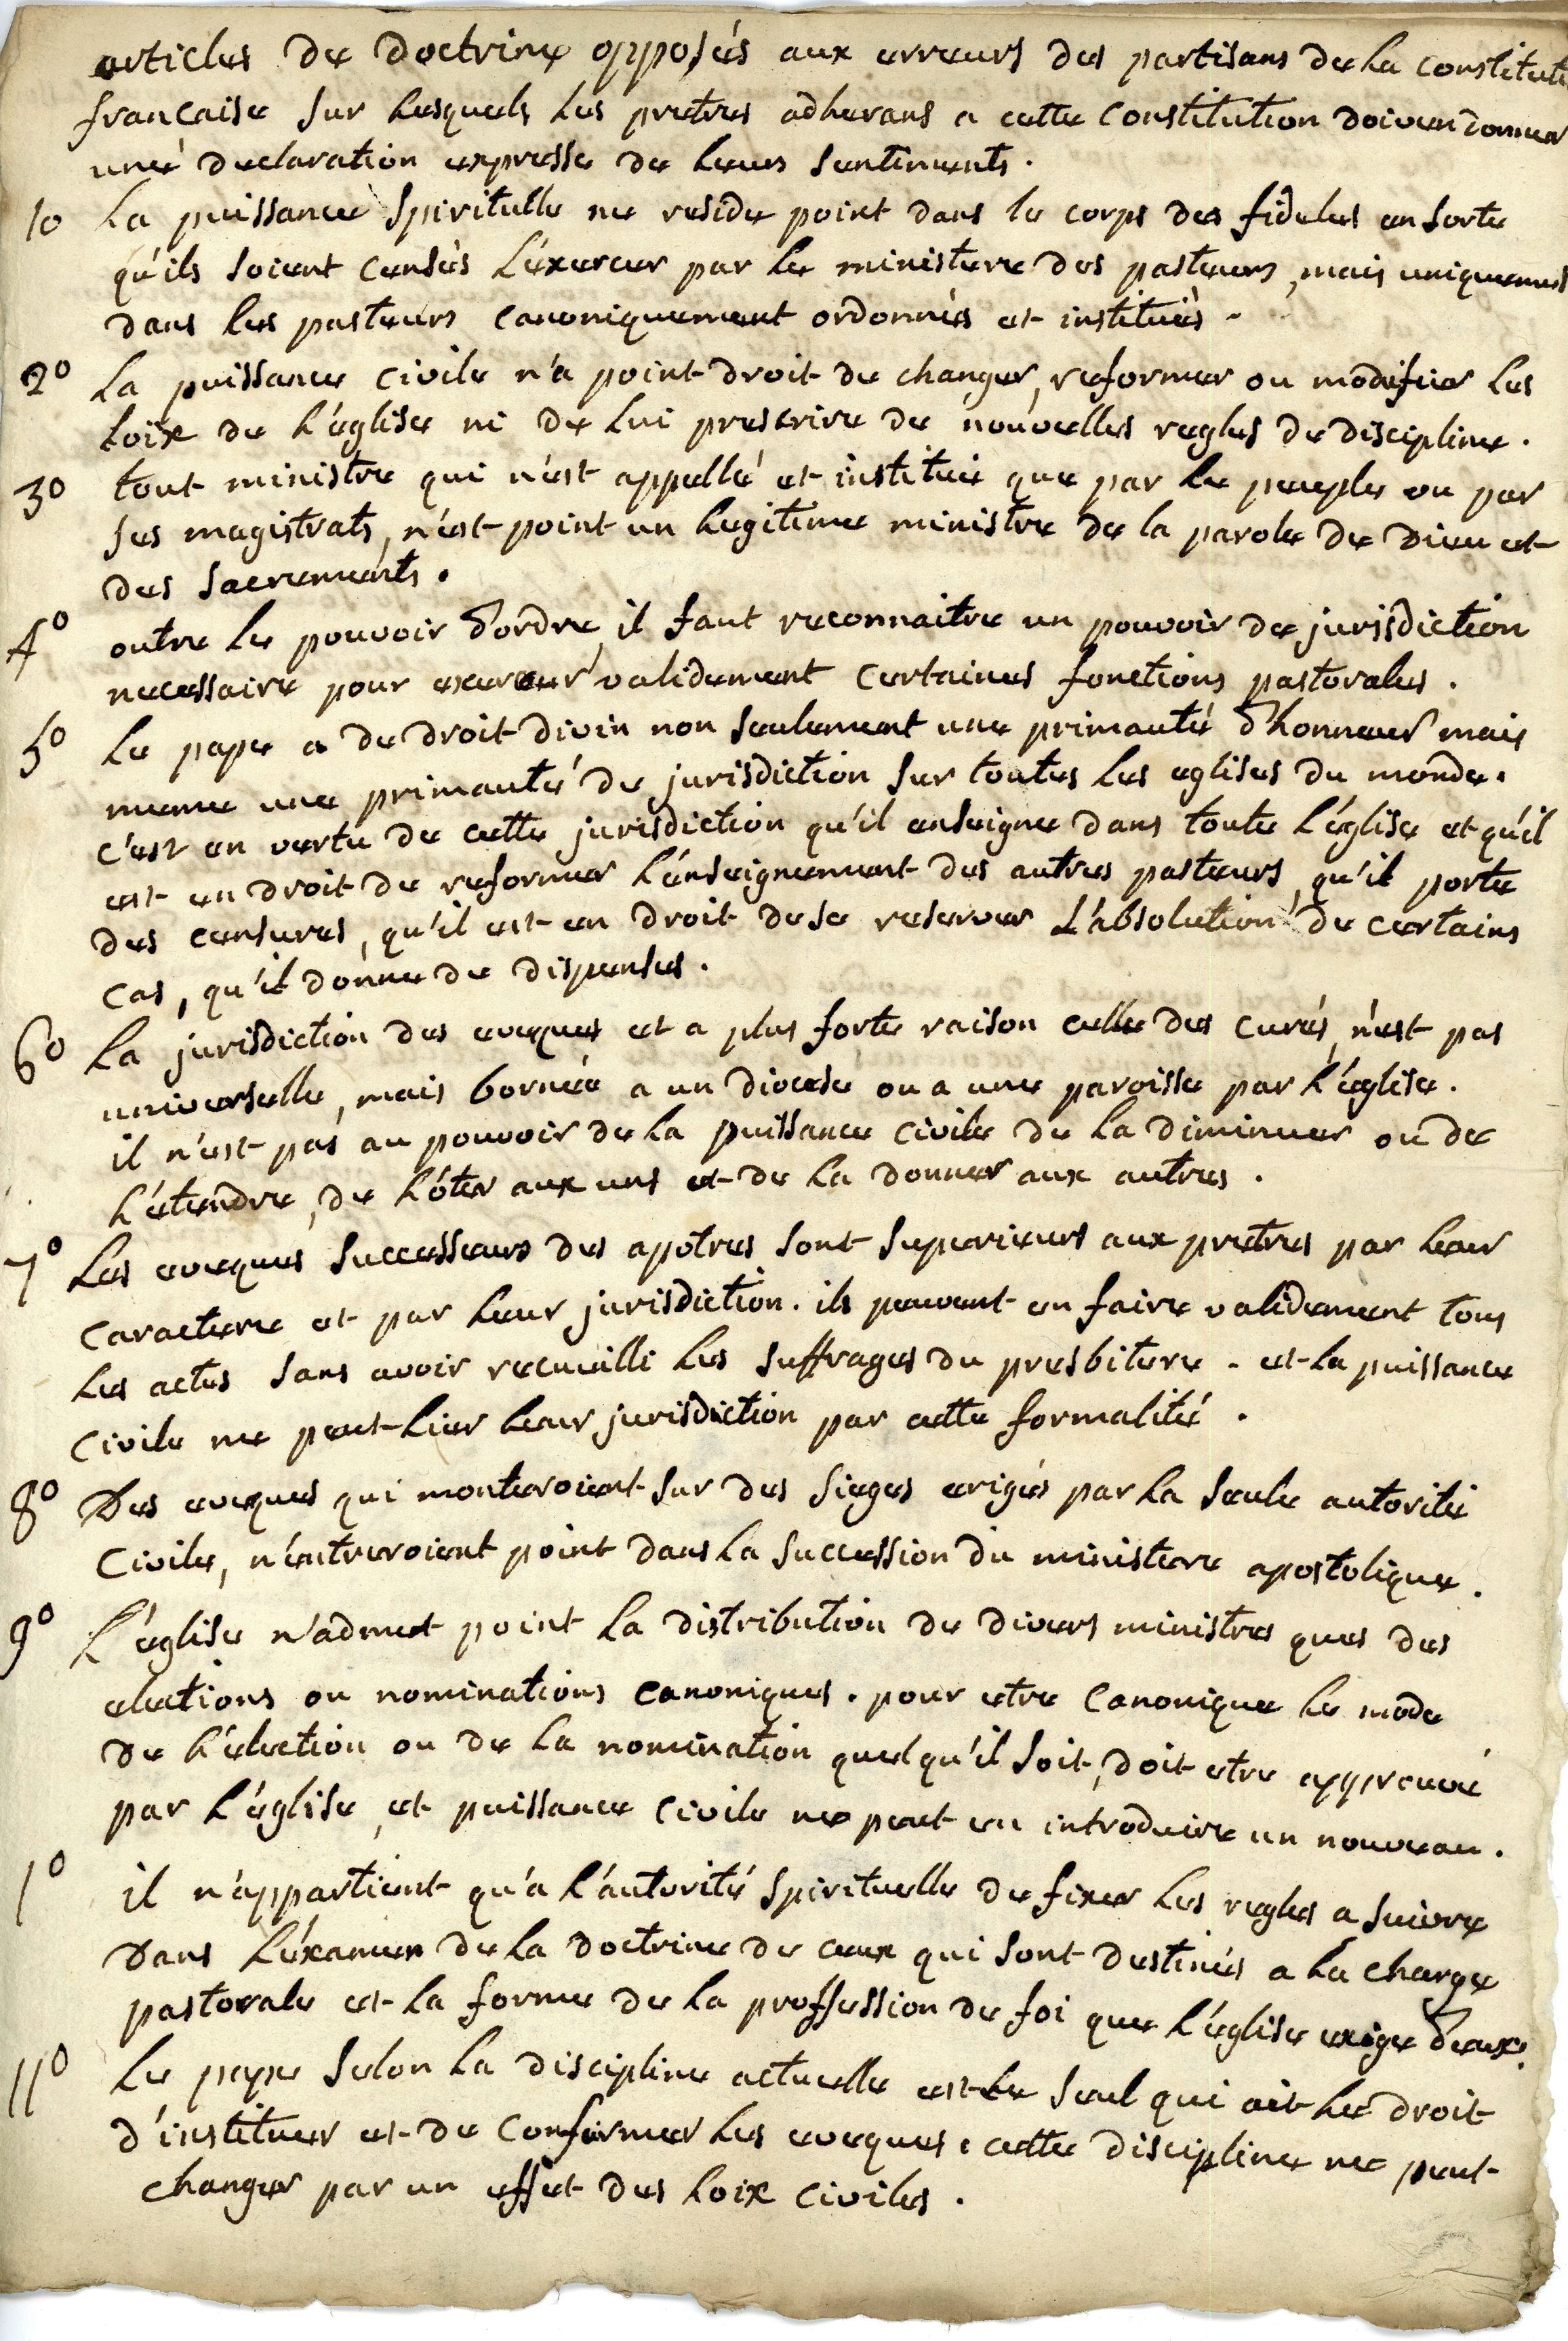 articles de doctrine opposés aux erreurs des partisans de la constituti
francaise sur lesquels les pretres adherans a cette constitution doiven donner
une declaration expresse de leurs sentiments.
1o La puissance spirituelle ne reside point dans le corps des fideles en sorte
qu'ils soient censés l'éxercer par le ministere des pasteurs, mais uniquement
dans les pasteurs canoniquement ordonnés et institués.
2o La puissance civile n'a point droit de changer, reformer ou modifier les
loix de l'église ni de lui prescrire de nouvelles regles de discipline.
3o tout ministre qui n'est appellé et institué que par le peuple ou par
ses magistrats, n'est point un legitime ministre de la parole de Dieu et
des sacrements.
4o outre le pouvoir d'ordre, il faut reconnaitre un pouvoir de jurisdiction
necessaire pour exercer validement certaines fonctions pastorales.
5o Le pape a de droit divin non seulement une primauté d'honneur mais
meme une primauté de jurisdiction sur toutes les eglises du monde.
c'est en vertu de cette jurisdiction qu'il enseigne dans toute l'église et qu'il
est en droit de reformer l'énseignement des autres pasteurs, qu'il porte
des censures, qu'il est en droit de se reserver L'absolution de certains
cas, qu'il donne de dispenses.
6o La jurisdiction des eveques et a plus forte raison celle des curés, n'est pas
universelle, mais bornée a un diocese ou a une paroisse par l'église.
il n'est pas au pouvoir de la puissance civile de la diminuer ou de
l'étendre, de l'óter aux uns et de la donner aux autres.
7o Les eveques successeurs des apotres sont superieurs aux pretres par leur
caractere et par leur jurisdiction. ils peuvent en faire validement tous
les actes sans avoir recueilli les suffrages du presbitere. et la puissance
civile ne peut lier leur jurisdiction par cette formalité.
8o Des eveques qui monteroient sur des sieges erigés par la seule autorité
civile, n'éntreroient point dans la succession du ministere apostolique.
9o L'église n'admet point la distribution de divers ministres ques des
elections ou nominations canoniques. pour etre canonique le mode
de l'élection ou de la nomination quel qu'il soit, doit etre approuvé
par l'église, et puissance civile ne peut en introduire un nouveau.
1o il n'appartient qu'a l'autorité spirituelle de fixer les regles a suivre
dans l'éxamen de la doctrine de ceux qui sont destinés a la charge
pastorale et la forme de la proffession de foi que l'église exige d'eux.
11o Le pape selon la discipline actuelle est le seul qui ait le droit
d'instituer et de confirmer les eveques. cette discipline ne peut
changer par un effet des loix civiles.